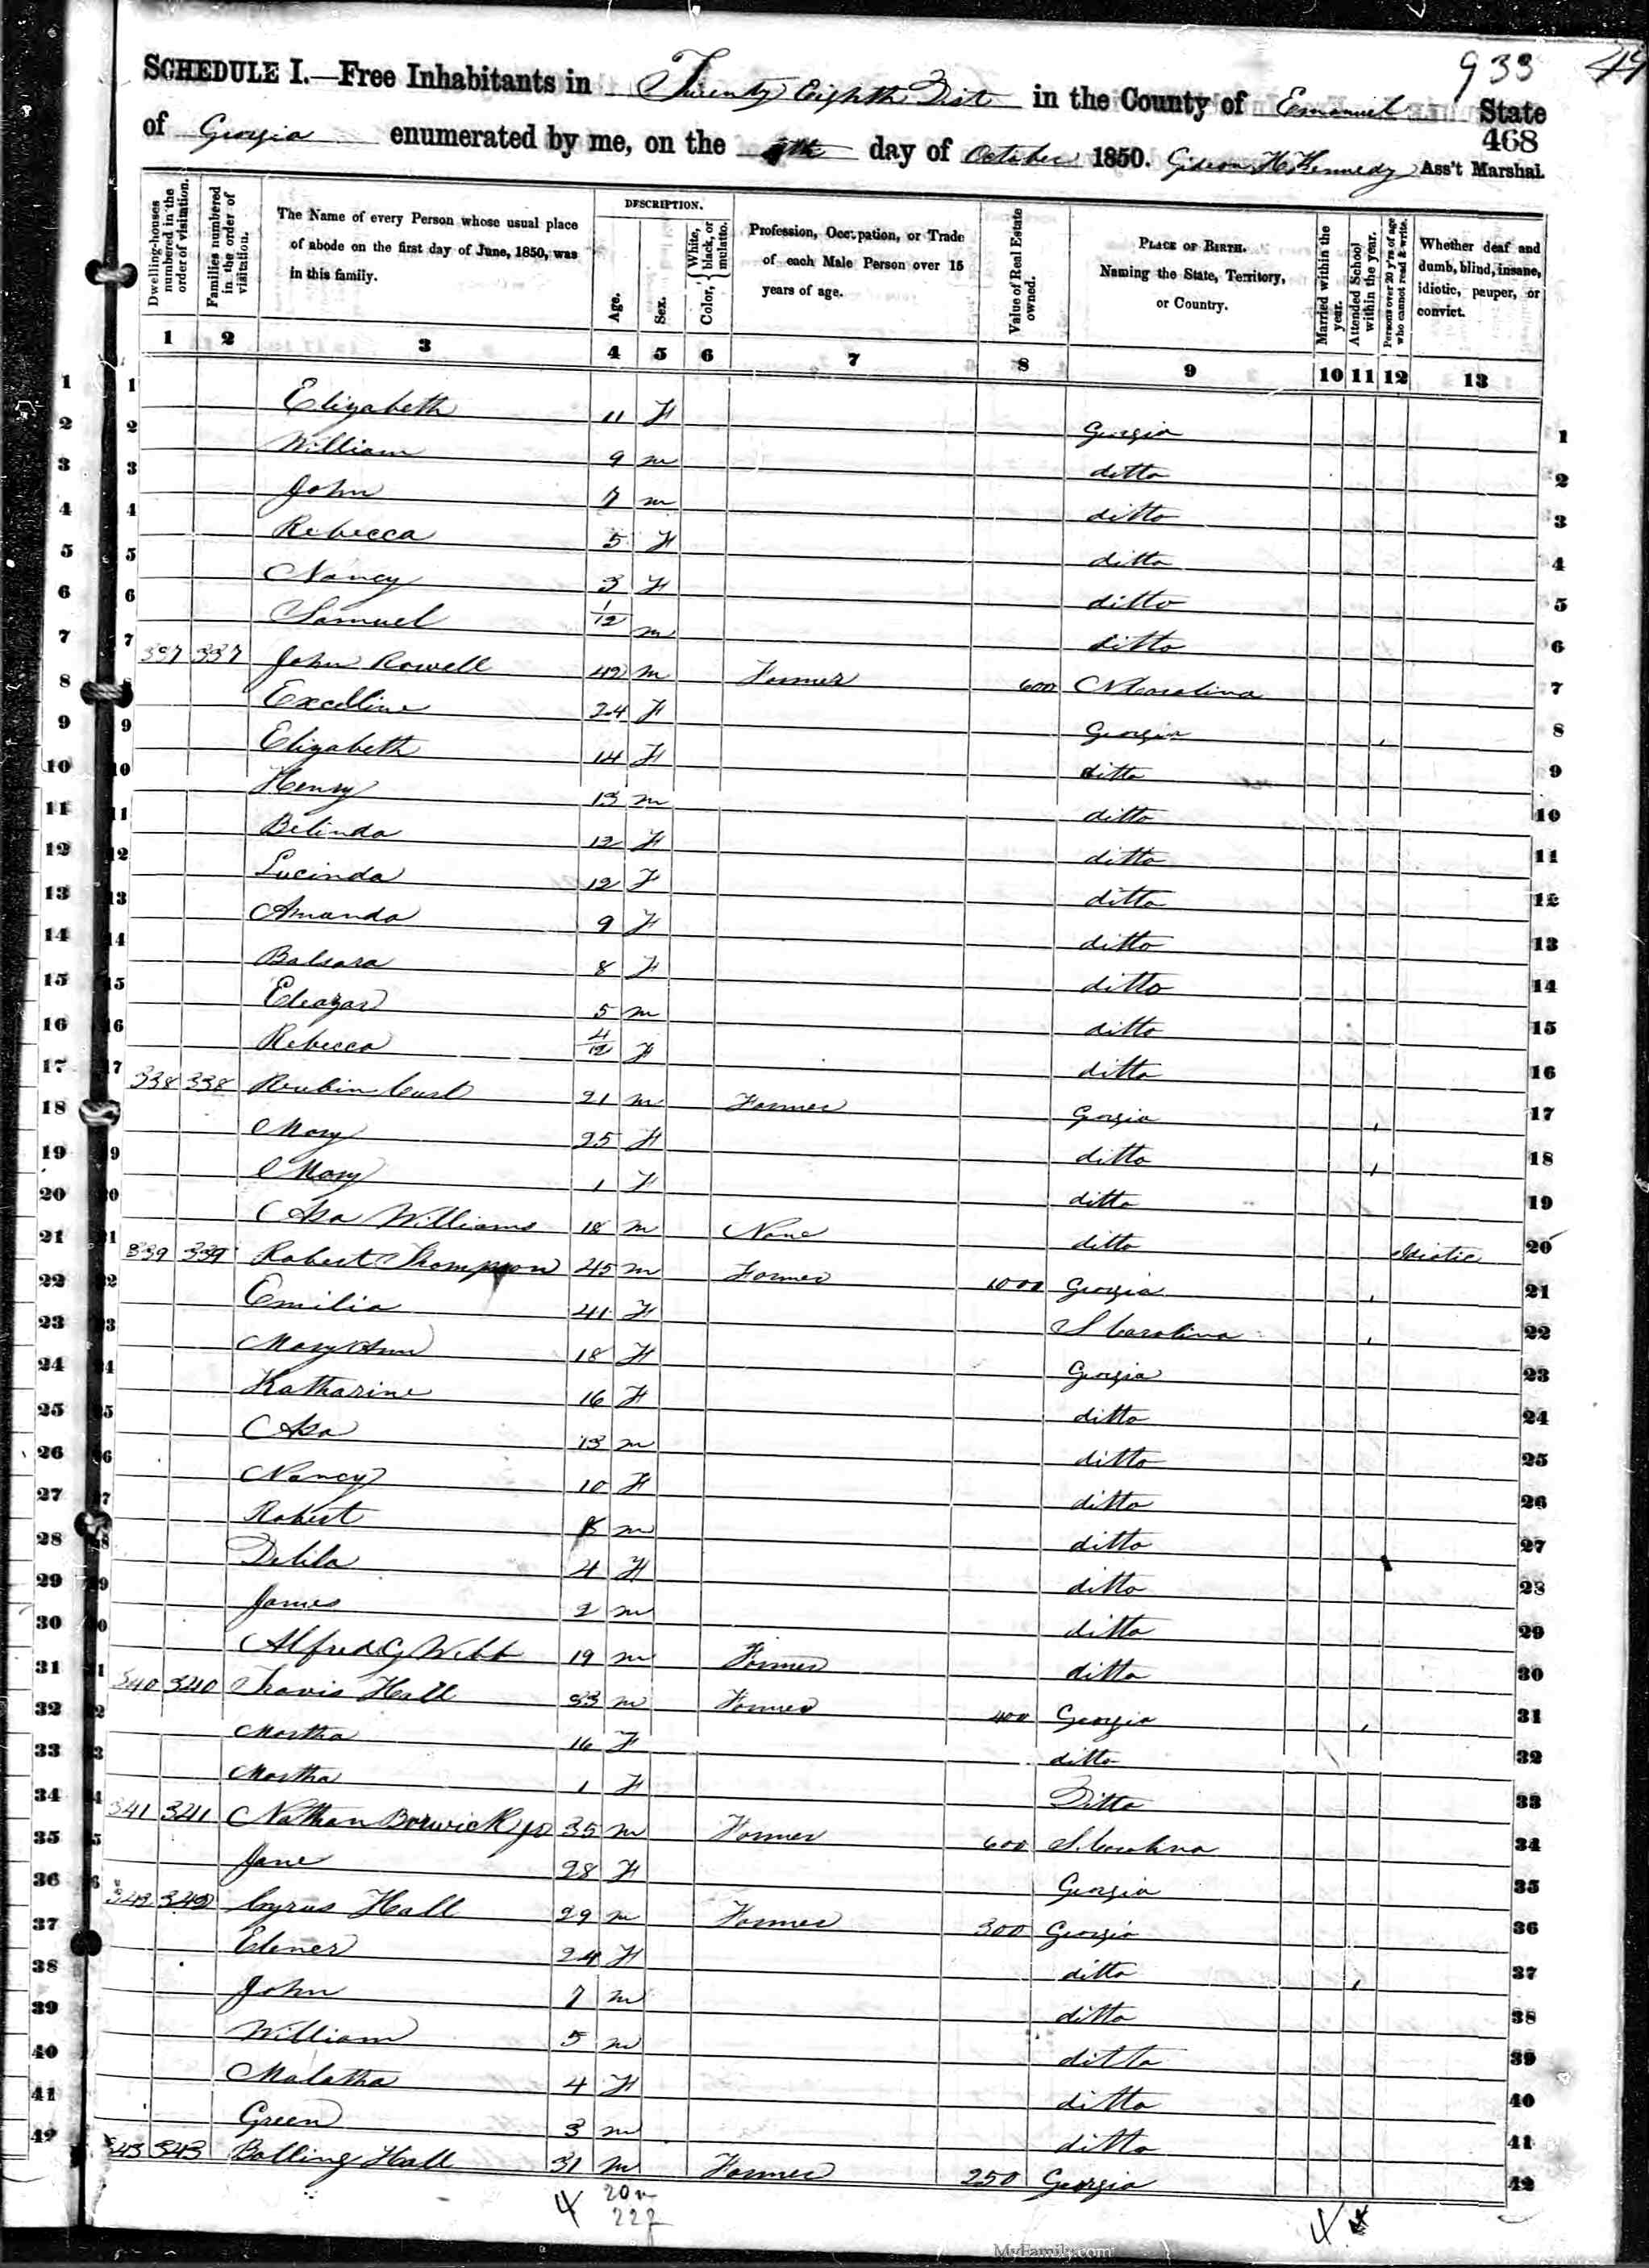 933 49
SCHEDULE I.—Free Inhabitants in Twenty Eighth Dist in the County of Emanuel State
468
of Georgia enumerated by me, on the day of October 1850. Gideon H Kennedy Ass't Marshal.
Dwelling-houses numbered in the order of visitation.
Families numbered in the order of visitation.
The Name of every Person whose usual place of abode on the first day of June, 1850, was in this family.
DESCRIPTION.
Age.
Sex.
Color, { White, black, or mulatto.
Profession, Occupation, or Trade of each Male Person over 15 years of age.
Value of Real Estate owned.
PLACE OF BIRTH. Naming the State, Territory, or Country.
Married within the year.
Attended School within the year.
Persons over 20 y'rs of age who cannot read & write.
Whether deaf and dumb, blind, insane, idiotic, pauper, or convict.
1 2 3 4 5 6 7 8 9 10 11 12 13
1 1 Elizabeth 11 F Georgia 1
2 2 William 9 m ditto 2
3 3 John 7 m ditto 3
4 4 Rebecca 5 F ditto 4
5 5 Nancy 3 F ditto 5
6 6 Samuel 1/12 m ditto 6
7 7 337 337 John Rowell 42 m Farmer 600 N Carolina 7
8 8 Excelline 24 F Georgia 8
9 9 Elizabeth 14 F ditto 9
10 10 Henry 13 m ditto 10
11 11 Belinda 12 F ditto 11
12 12 Lucinda 12 F ditto 12
13 13 Amanda 9 F ditto 13
14 14 Balsara 8 F ditto 14
15 15 Eleazar 5 m ditto 15
16 16 Rebecca 4/12 F ditto 16
17 17 338 338 Reubin 21 m Farmer Georgia 17
18 Mary 25 F ditto 18
19 9 Mary 1 F ditto 19
20 20 Asa Williams 18 m None ditto Idiotic 20
21 21 339 339 Robert Thompson 45 m Farmer 1000 Georgia 21
22 22 Emilia 41 F S Carolina 22
23 3 Mary Ann 18 F Georgia 23
24 4 Katharine 16 F ditto 24
25 5 Asa 13 m ditto 25
26 6 Nancy 10 F ditto 26
27 7 Robert 8 m ditto 27
28 8 Delila 4 F ditto 28
29 9 James 2 m ditto 29
30 0 Alfred G Webb 19 m Farmer ditto 30
31 1 340 340 Travis Hall 33 m Farmer 400 Georgia 31
32 2 Martha 16 F ditto 32
33 3 Martha 1 F Ditto 33
34 4 341 341 Nathan Borwick jr 35 m Farmer 600 S. Carolina 34
35 5 Jane 28 F Georgia 35
36 6 342 342 Cyrus Hall 29 m Farmer 300 Georgia 36
37 Elener 24 F ditto 37
38 John 7 m ditto 38
39 William 5 m ditto 39
40 Malatha 4 F ditto 40
41 Green 3 m ditto 41
42 343 343 Bolling Hall 31 m Farmer 250 Georgia 42
20 m
22 f
MyFamily.com